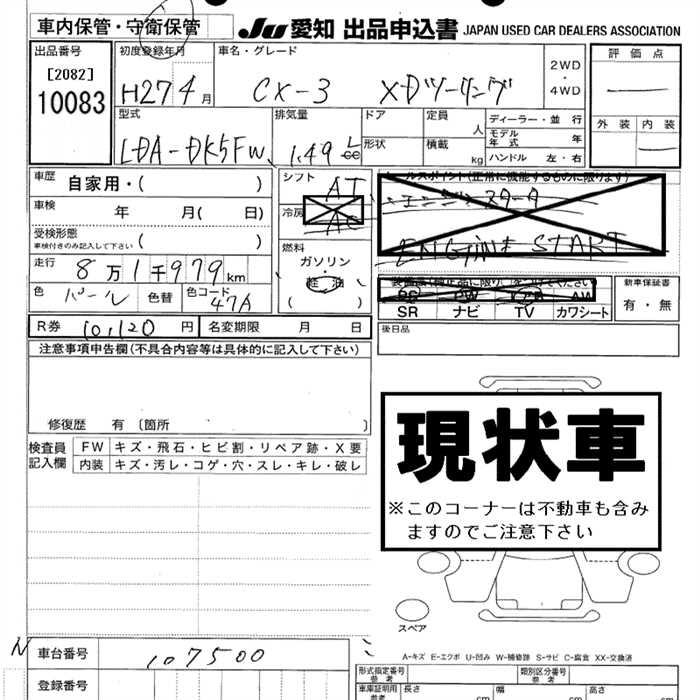 車内保管・守衛保管
JU 愛知 出品申込書 JAPAN USED CAR DEALERS ASSOCIATION
出品番号
[2082]
10083
初度登録年月
H27 4月
車名・グレード
CX-3 XDツーリング
2WD
・
4WD
評価点
外装 内装
型式
LDA-DK5FW
排気量
1.49 L
cc
ドア
形状
定員
人
積載
kg
ディーラー・並行
モデル年式 年
ハンドル 左・右
車歴 自家用・( )
車検 年 月( 日)
受検形態
車検付きのみ記入して下さい ( )
走行 8万1千979km
色 パール 色替 色コード 47A
R券 10,120 円 名変期限 月 日
シフト AT
冷房 AC
燃料
ガソリン・
軽油
( )
セールスポイント(正常に機能するものに限ります)
エンジンスタータ
ENGINE START
SR PW AW
SR ナビ TV カワシート
新車保証書
有・無
後日品
注意事項申告欄(不具合内容等は具体的に記入して下さい)
修復歴 有〔箇所 〕
検査員記入欄
FW キズ・飛石・ヒビ割・リペア跡・X要
内装 キズ・汚レ・コゲ・穴・スレ・キレ・破レ
現状車
※このコーナーは不動車も含み
ますのでご注意下さい
スペア
A-キズ E-エクボ U-凹み W-補修跡 S-サビ C-腐食 XX-交換済
N
車台番号 107500
登録番号
形式指定番号
参考
類別区分番号
参考
車庫証明用
参考
長さ cm 幅 cm 高さ cm